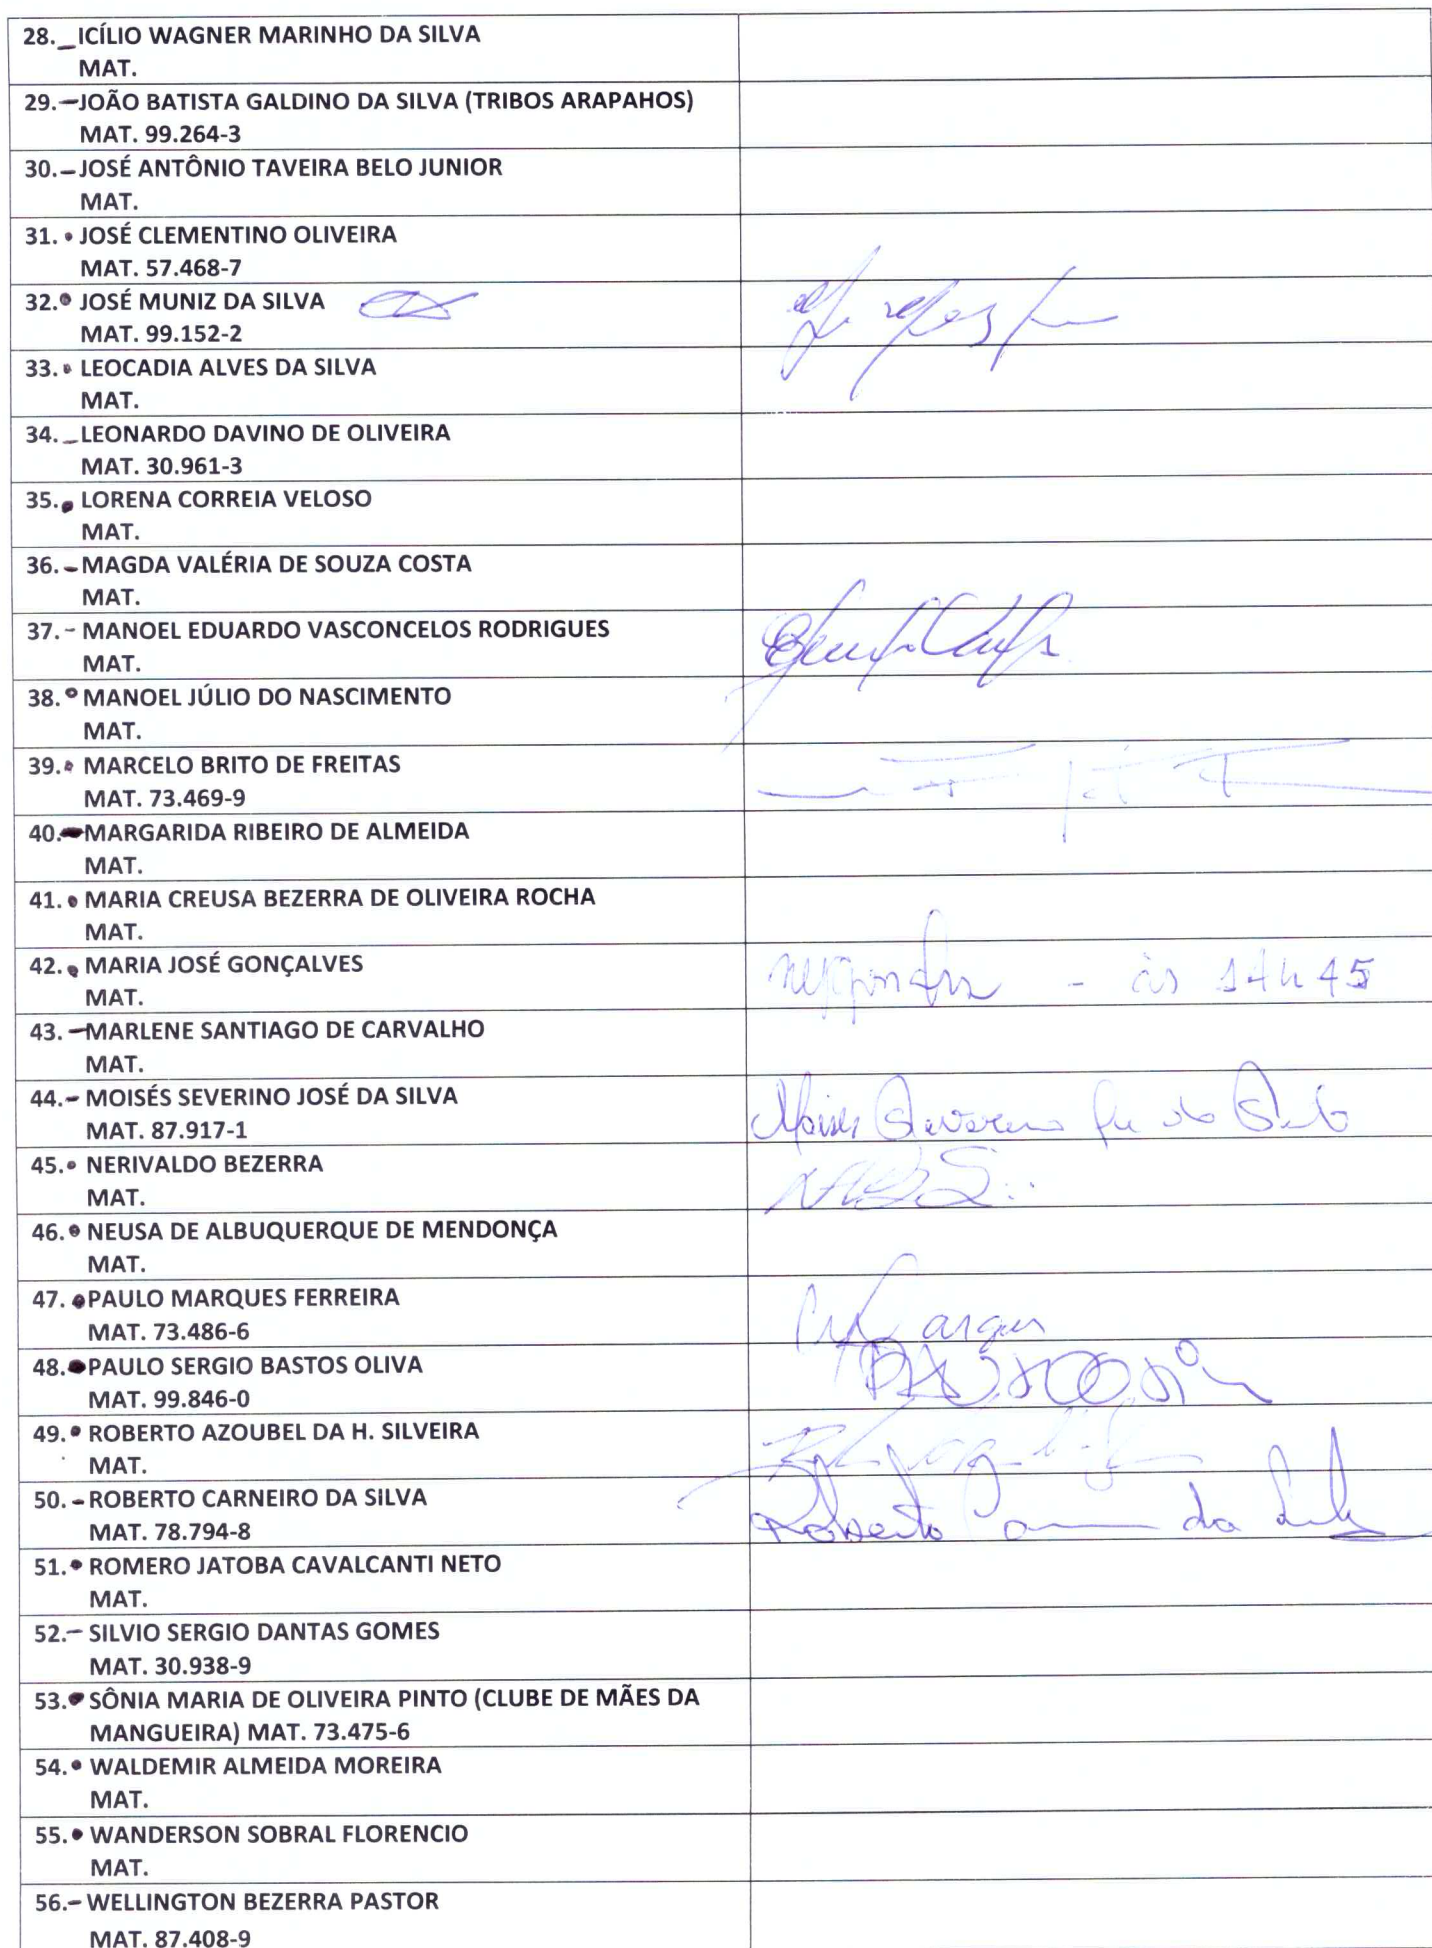 28. ICÍLIO WAGNER MARINHO DA SILVA
MAT.
29. JOÃO BATISTA GALDINO DA SILVA (TRIBOS ARAPAHOS)
MAT. 99.264-3
30. JOSÉ ANTÔNIO TAVEIRA BELO JUNIOR
MAT.
31. JOSÉ CLEMENTINO OLIVEIRA
MAT. 57.468-7
32. JOSÉ MUNIZ DA SILVA
MAT. 99.152-2
33. LEOCADIA ALVES DA SILVA
MAT.
34. LEONARDO DAVINO DE OLIVEIRA
MAT. 30.961-3
35. LORENA CORREIA VELOSO
MAT.
36. MAGDA VALÉRIA DE SOUZA COSTA
MAT.
37. MANOEL EDUARDO VASCONCELOS RODRIGUES
MAT.
38. MANOEL JÚLIO DO NASCIMENTO
MAT.
39. MARCELO BRITO DE FREITAS
MAT. 73.469-9
40. MARGARIDA RIBEIRO DE ALMEIDA
MAT.
41. MARIA CREUSA BEZERRA DE OLIVEIRA ROCHA
MAT.
42. MARIA JOSÉ GONÇALVES
MAT.
- às 14h45
43. MARLENE SANTIAGO DE CARVALHO
MAT.
44. MOISÉS SEVERINO JOSÉ DA SILVA
MAT. 87.917-1
Moises Severino
45. NERIVALDO BEZERRA
MAT.
46. NEUSA DE ALBUQUERQUE DE MENDONÇA
MAT.
47. PAULO MARQUES FERREIRA
MAT. 73.486-6
48. PAULO SERGIO BASTOS OLIVA
MAT. 99.846-0
49. ROBERTO AZOUBEL DA H. SILVEIRA
MAT.
50. ROBERTO CARNEIRO DA SILVA
MAT. 78.794-8
Roberto da Silva
51. ROMERO JATOBA CAVALCANTI NETO
MAT.
52. SILVIO SERGIO DANTAS GOMES
MAT. 30.938-9
53. SÔNIA MARIA DE OLIVEIRA PINTO (CLUBE DE MÃES DA
MANGUEIRA) MAT. 73.475-6
54. WALDEMIR ALMEIDA MOREIRA
MAT.
55. WANDERSON SOBRAL FLORENCIO
MAT.
56. WELLINGTON BEZERRA PASTOR
MAT. 87.408-9